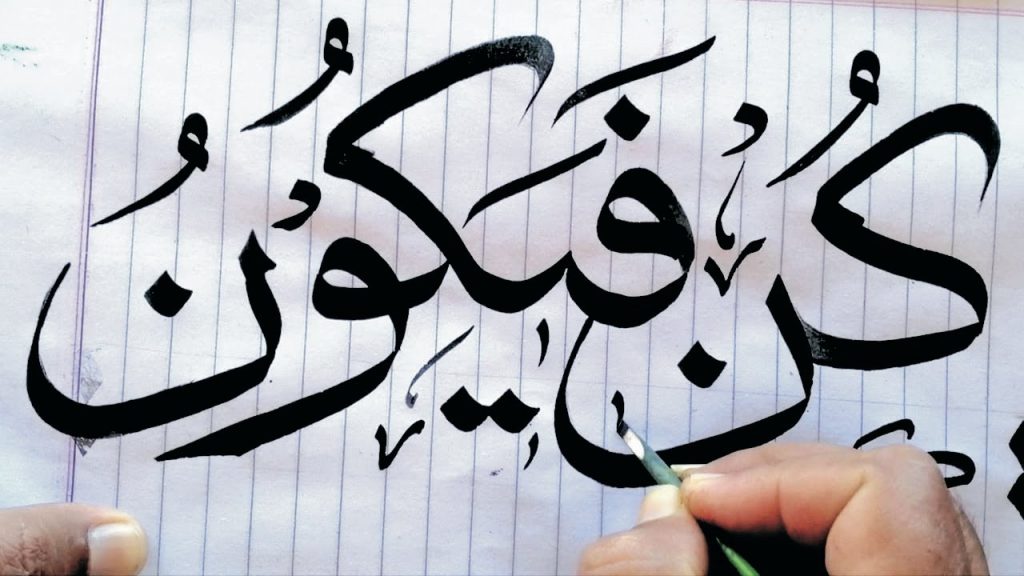 كُنْ فَيَكُوْنُ